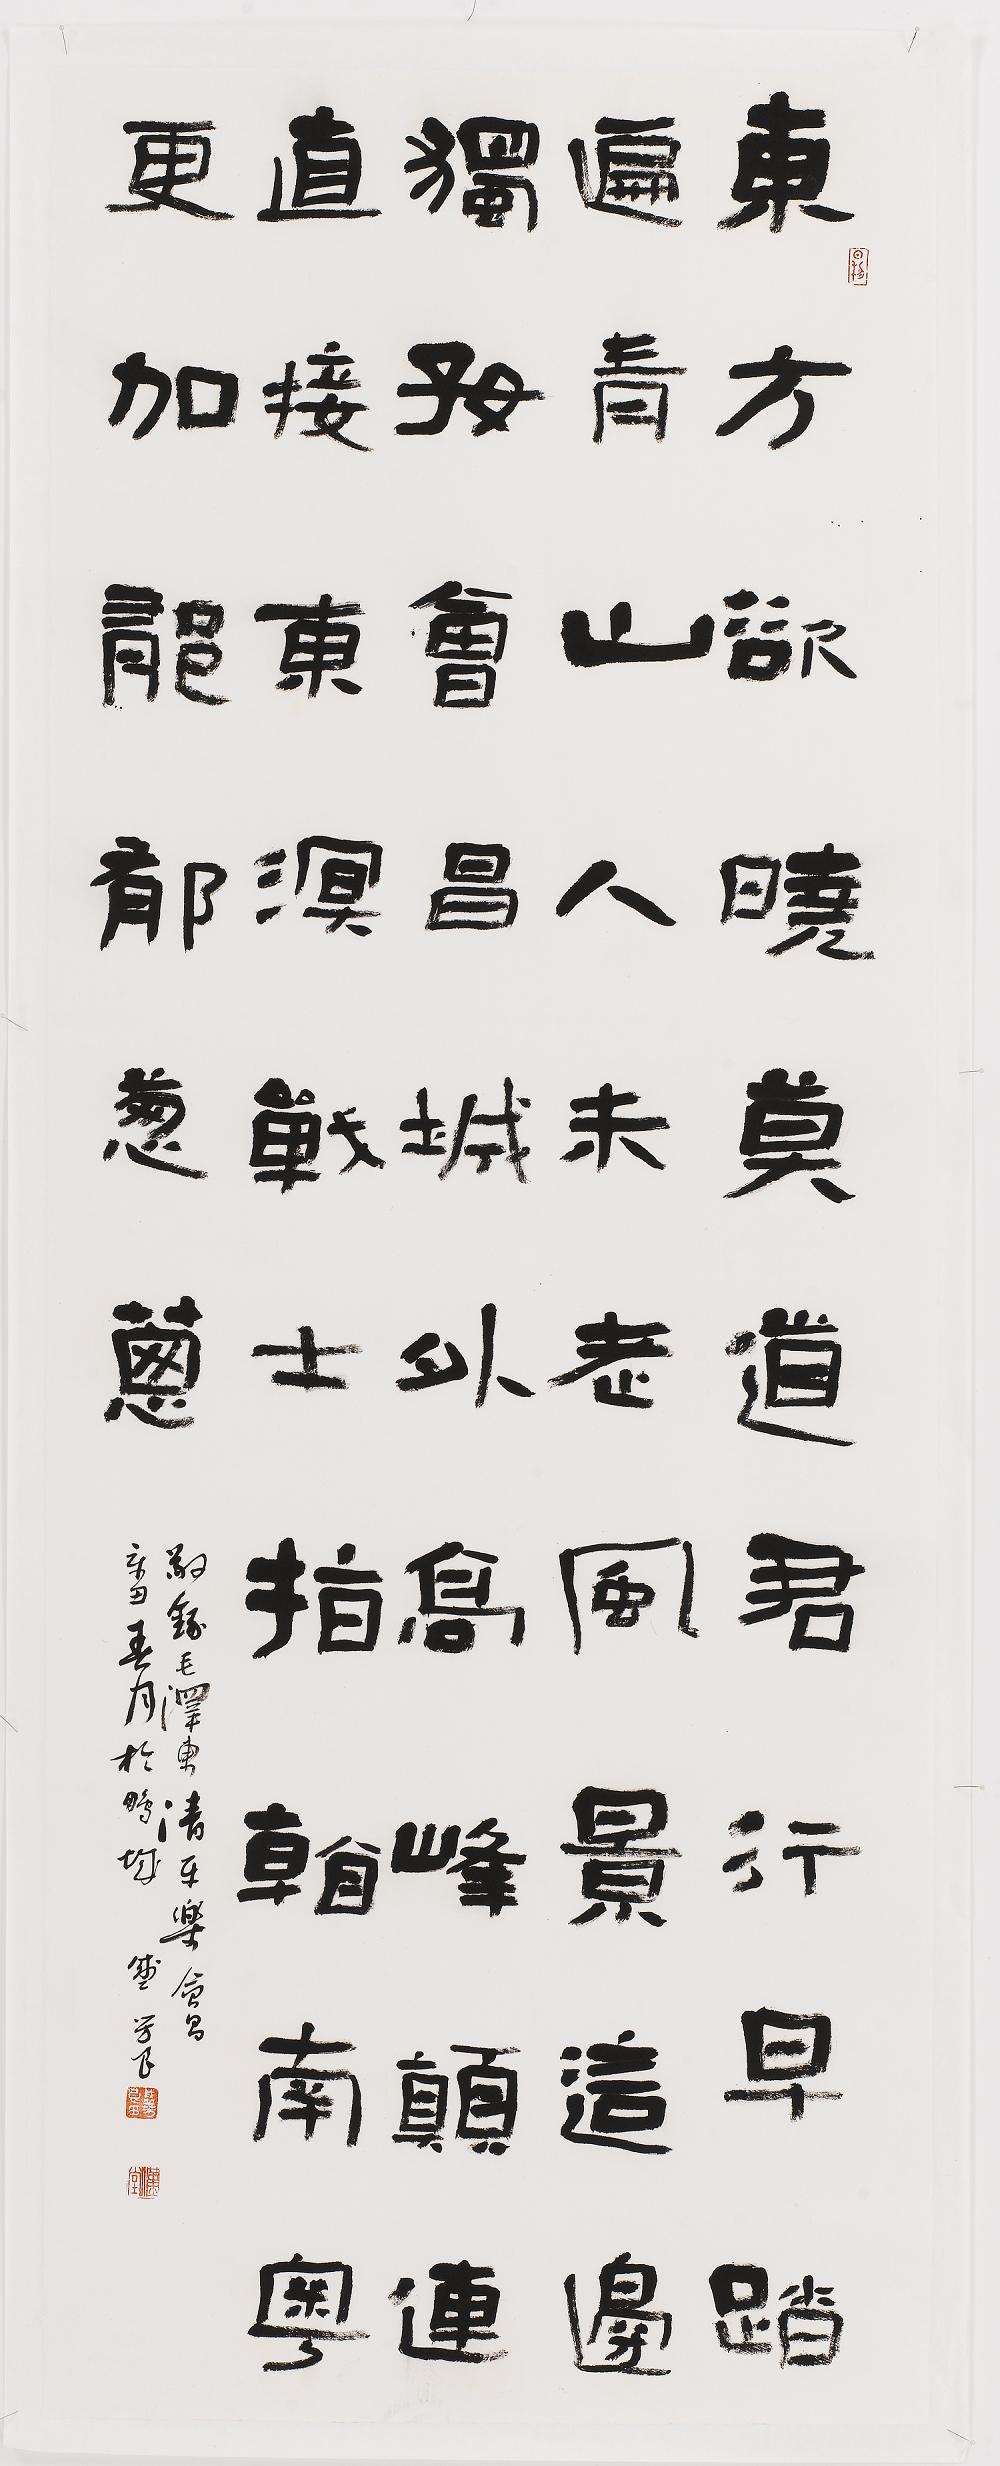 東方欲曉莫道君行早踏
遍青山人未老風景這邊
獨好會昌城外高峰顛連
直接東溟戰士指看南粵
更加郁郁葱蔥
敬錄毛澤東清平樂會昌
辛丑春月於鵬城